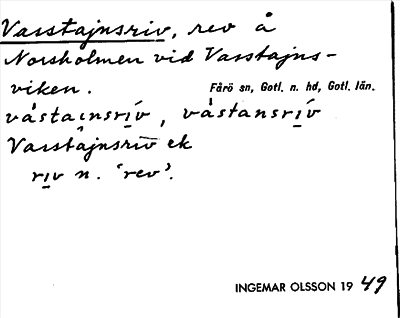 Vasstajnsriv, rev å
Norsholmen vid Vasstajns-
viken.
Fårö sn, Gotl. n. hd, Gotl. län.
våstaınsrív, våstansrív
Vasstajnsriv ek
riv n. 'rev'.
INGEMAR OLSSON 19 49